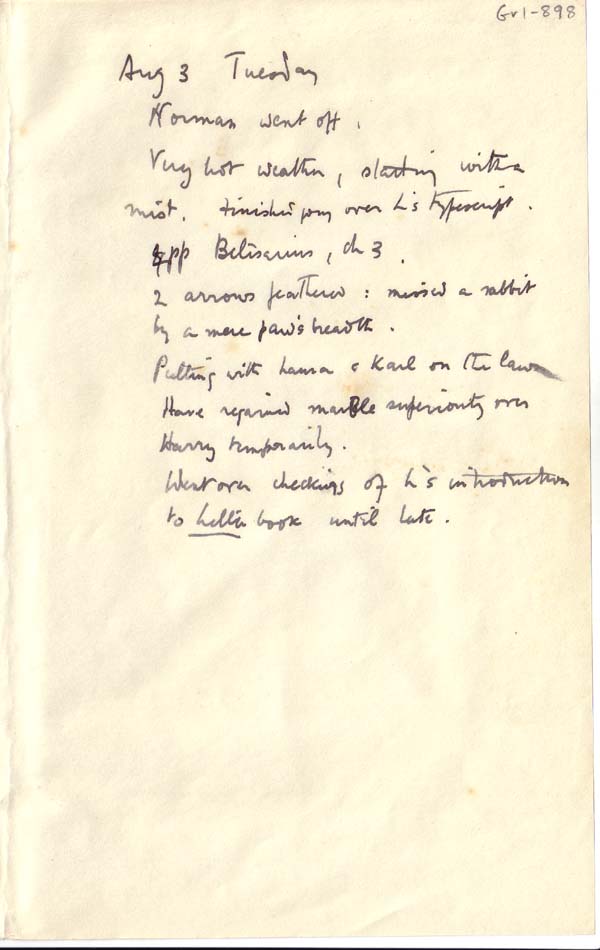 Gr1-898
Aug 3 Tuesday
Norman went off.
Very hot weather, starting with a
mist. Finished going over L's typescript.
4 pp Belisarius, ch 3.
2 arrows feathered: missed a rabbit
by a mere paw's breadth.
Putting with Laura & Karl on the lawn
Have regained marble superiority over
Harry temporarily.
Went over checkings of L's introduction
to Letter book until late.